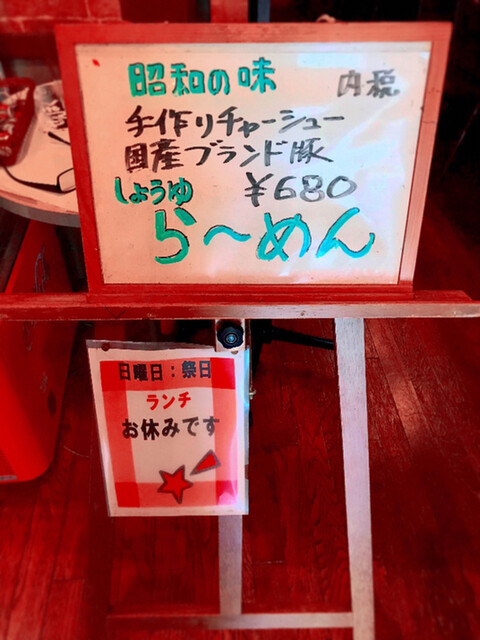 昭和の味 内税
手作りチャーシュー
国産ブランド豚
しょうゆ ¥680
ら〜めん
日曜日：祭日
ランチ
お休みです